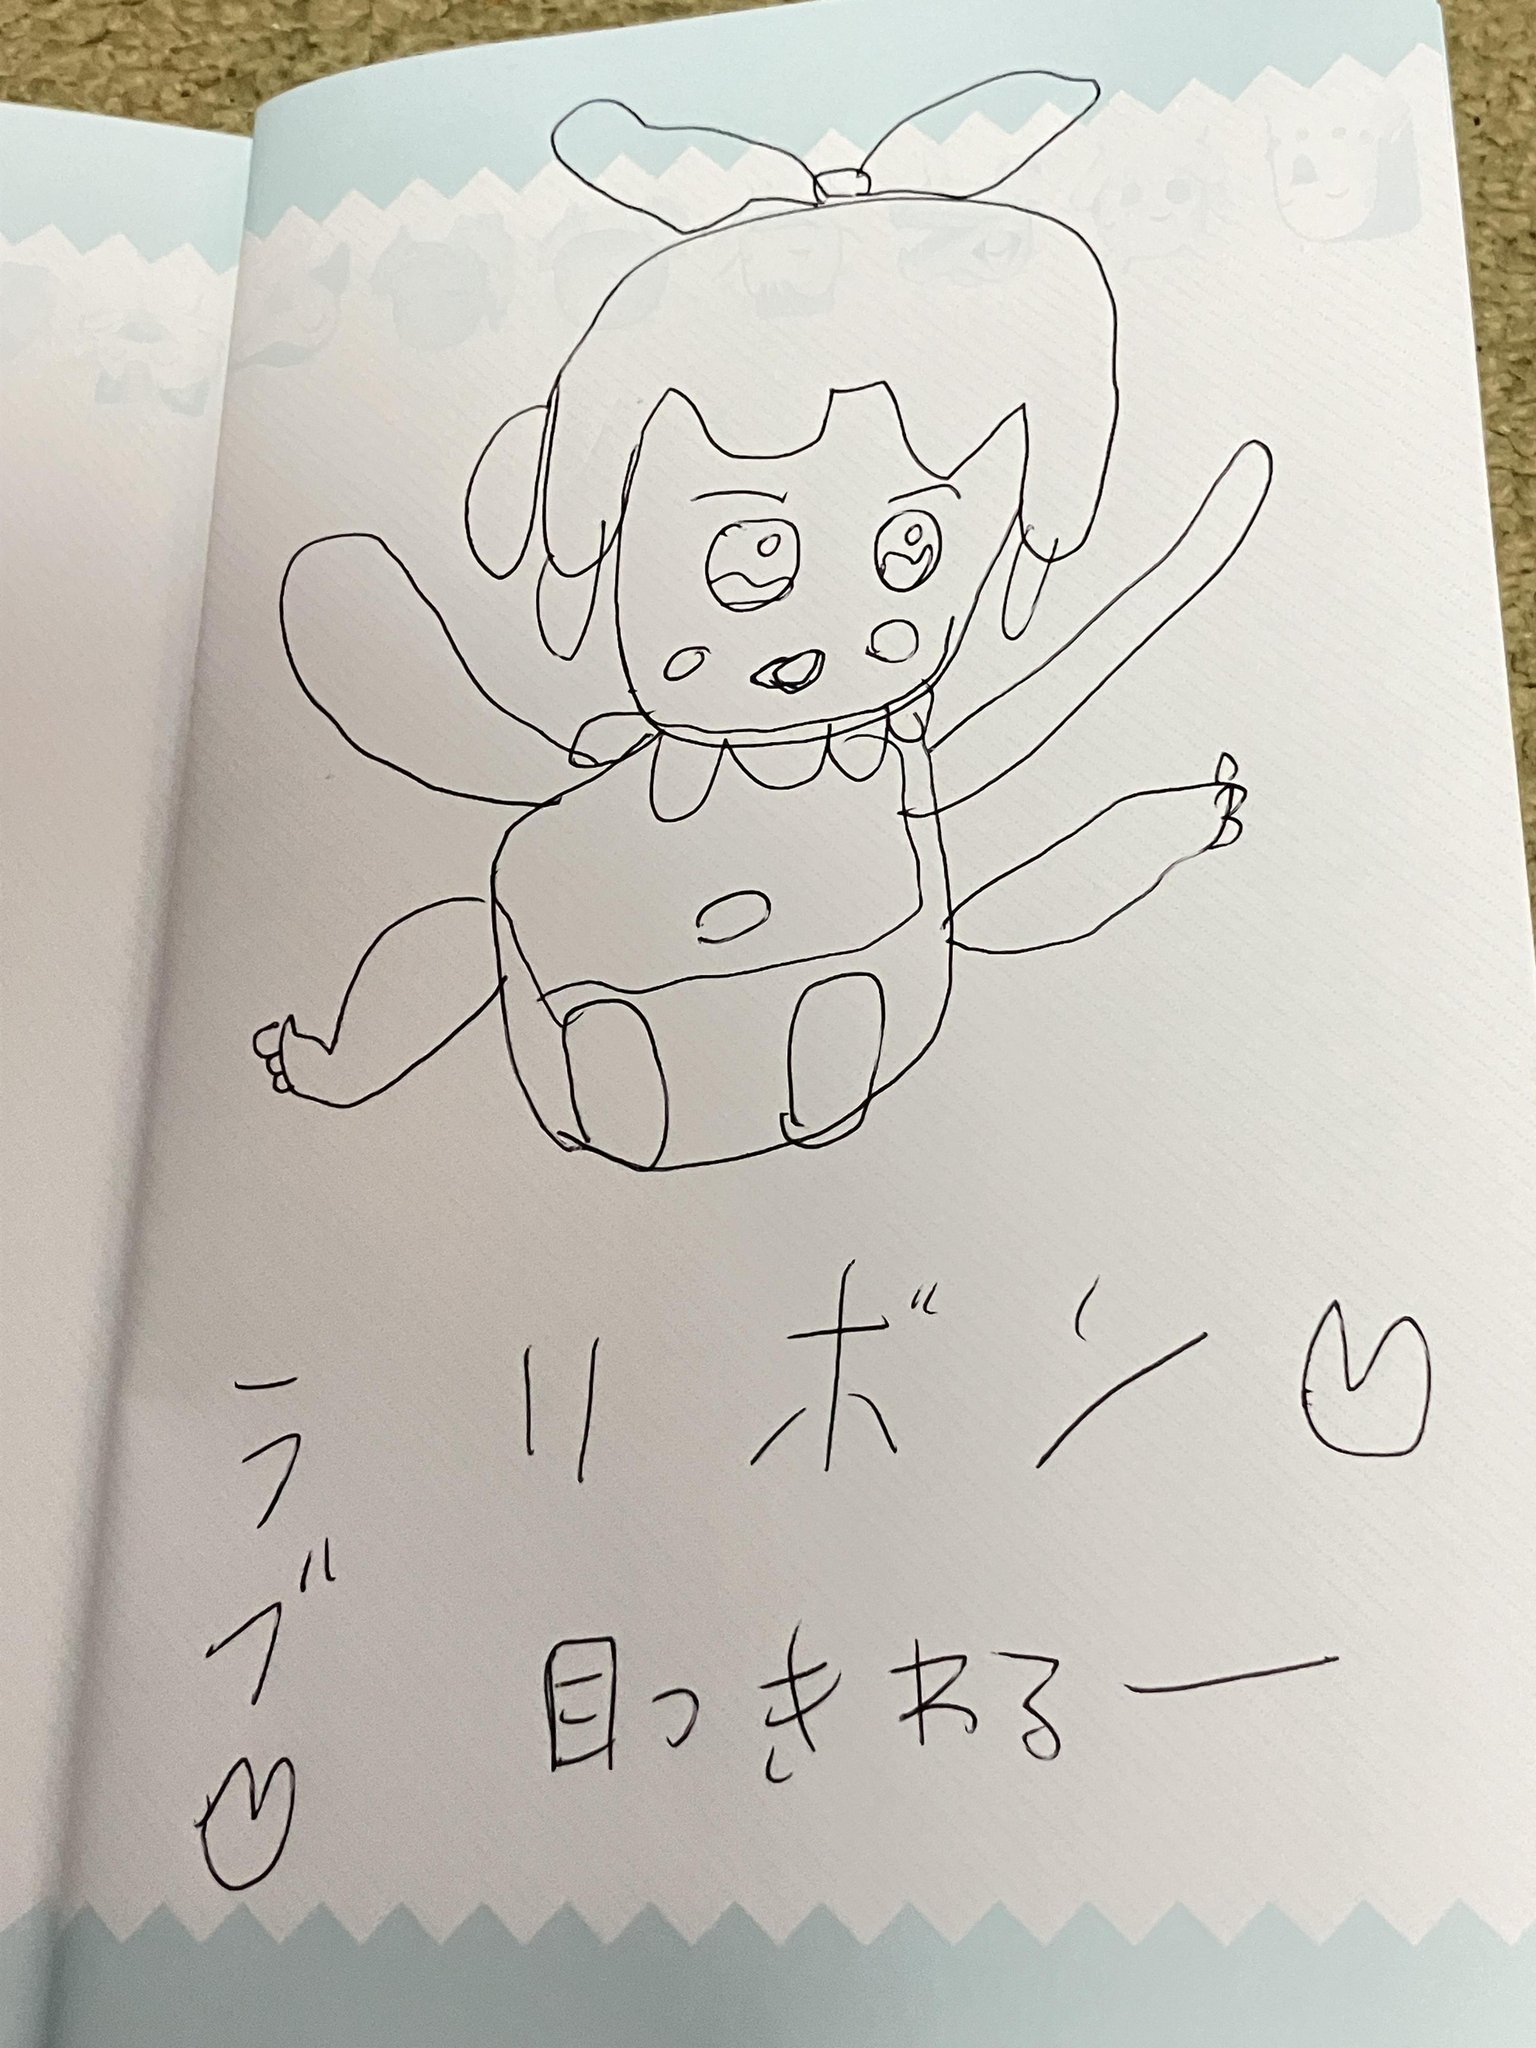 リボン
ラブ
目つきわるー